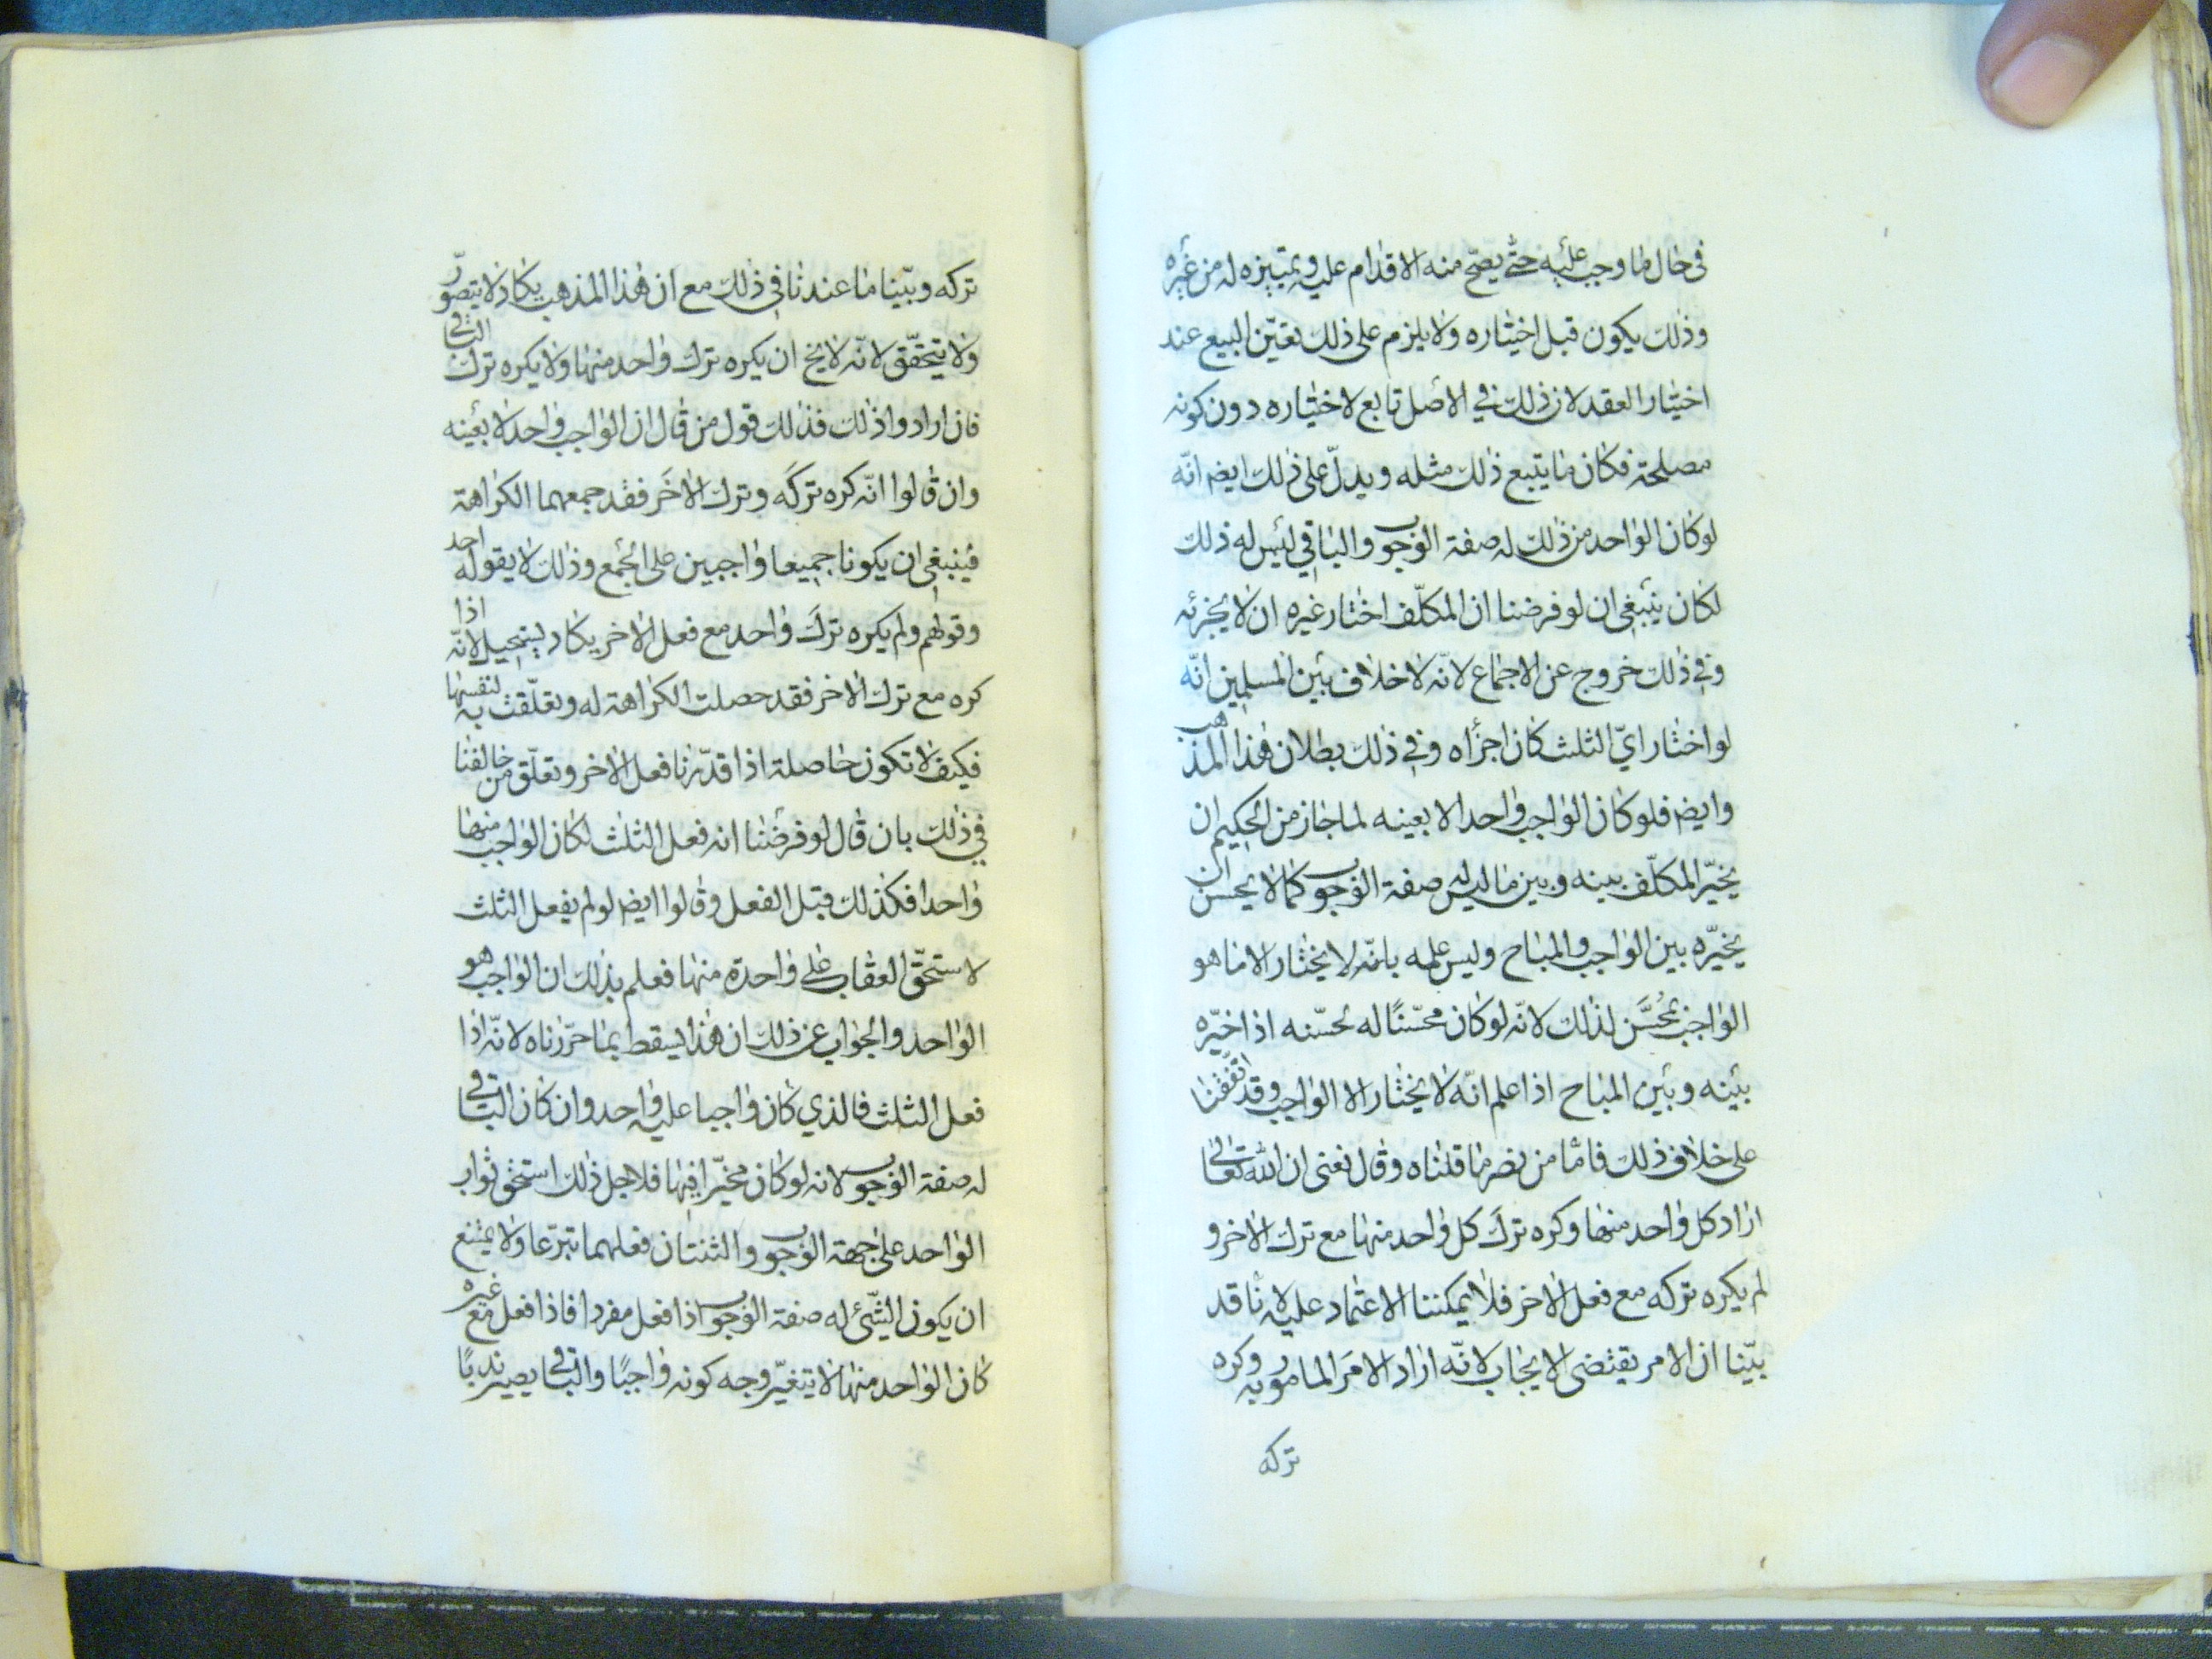 في حال ما وجب عليه حتّى يصحّ منه الاقدام عليه ويميّزه له من غيره
وذلك يكون قبل اختياره ولا يلزم على ذلك تعيّن البيع عند
اختيار العقد لان ذلك في الاصل تابع لاختياره دون كونه
مصلحة فكان ما يتبع ذلك مثله ويدلّ على ذلك ايضا انّه
لو كان الواحد من ذلك له صفة الوجوب والباقي ليس له ذلك
لكان ينبغي ان لو فرضنا ان المكلّف اختار غيره ان لا يجزئه
وفي ذلك خروج عن الاجماع لانّه لا خلاف بين المسلمين انّه
لو اختار ايّ الثلث كان اجزأه وفي ذلك بطلان هذا المذهب
وايضا فلو كان الواجب واحدا لا بعينه لما جاز من الحكيم ان
يخيّر المكلّف بينه وبين ما ليس له صفة الوجوب كما لا يحسن ان
يخيّره بين الواجب والمباح وليس علمه بانّه لا يختار الا ما هو
الواجب بمُحسَّن لذلك لانّه لو كان محسّنًا له لحسّنه اذا خيّره
بينه وبين المباح اذا علم انّه لا يختار الا الواجب وقد اتّفقنا
على خلاف ذلك فامّا من نصر ما قلناه وقال نعني ان الله تعالى
اراد كل واحد منها وكره ترك كل واحد منها مع ترك الاخر و
لم يكره تركه مع فعل الاخر فلا يمكننا الاعتماد عليه لانّا قد
بيّنا ان الامر يقتضى الايجاب لانّه اراد الامر المامور به وكره
تركه
تركه وبيّنا ما عندنا في ذلك مع ان هذا المذهب يكاد لا يتصوّر
ولا يتحقّق لانّه لا يخ ان يكره ترك واحد منها ولا يكره ترك الباقي
فان ارادوا ذلك فذلك قول من قال ان الواجب واحد لا بعينه
وان قالوا انّه كره تركه وترك الاخر فقد جمعهما الكراهة
فينبغي ان يكونا جميعا واجبين على الجمع وذلك لا يقوله احد
وقولهم ولم يكره ترك واحد مع فعل الاخر يكاد يستحيل لانّه اذا
كره مع ترك الاخر فقد حصلت الكراهة له وتعلّقت به لنفسها
فكيف لا تكون حاصلة اذا قدّرنا فعل الاخر وتعلّق من خالفنا
في ذلك بان قال لو فرضنا انه فعل الثلث لكان الواجب منها
واحدا فكذلك قبل الفعل وقالوا ايضا لو لم يفعل الثلث
لاستحقّ العقاب على واحدة منها فعلم بذلك ان الواجب هو
الواحد والجواب عن ذلك ان هذا يسقط بما حرّرناه لانّه اذا
فعل الثلث فالذي كان واجبا عليه واحد وان كان الباقي
له صفة الوجوب لانه لو كان مخيّرا فيها فلاجل ذلك استحق ثواب
الواحد على جهة الوجوب والثنتان فعلهما تبرّعا ولا يمتنع
ان يكون الشّيئ له صفة الوجوب اذا فعل مفردا فاذا فعل مع غيره
كان الواحد منها لا يتغيّر وجه كونه واجبًا والباقي يصير ندبًا